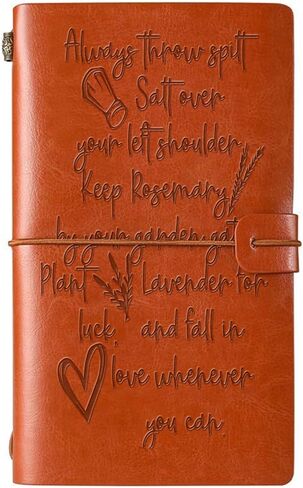 Always throw spilt
Salt over
your left shoulder
Keep Rosemary
by your garden gate
Plant Lavender for
luck, and fall in
love whenever
you can.